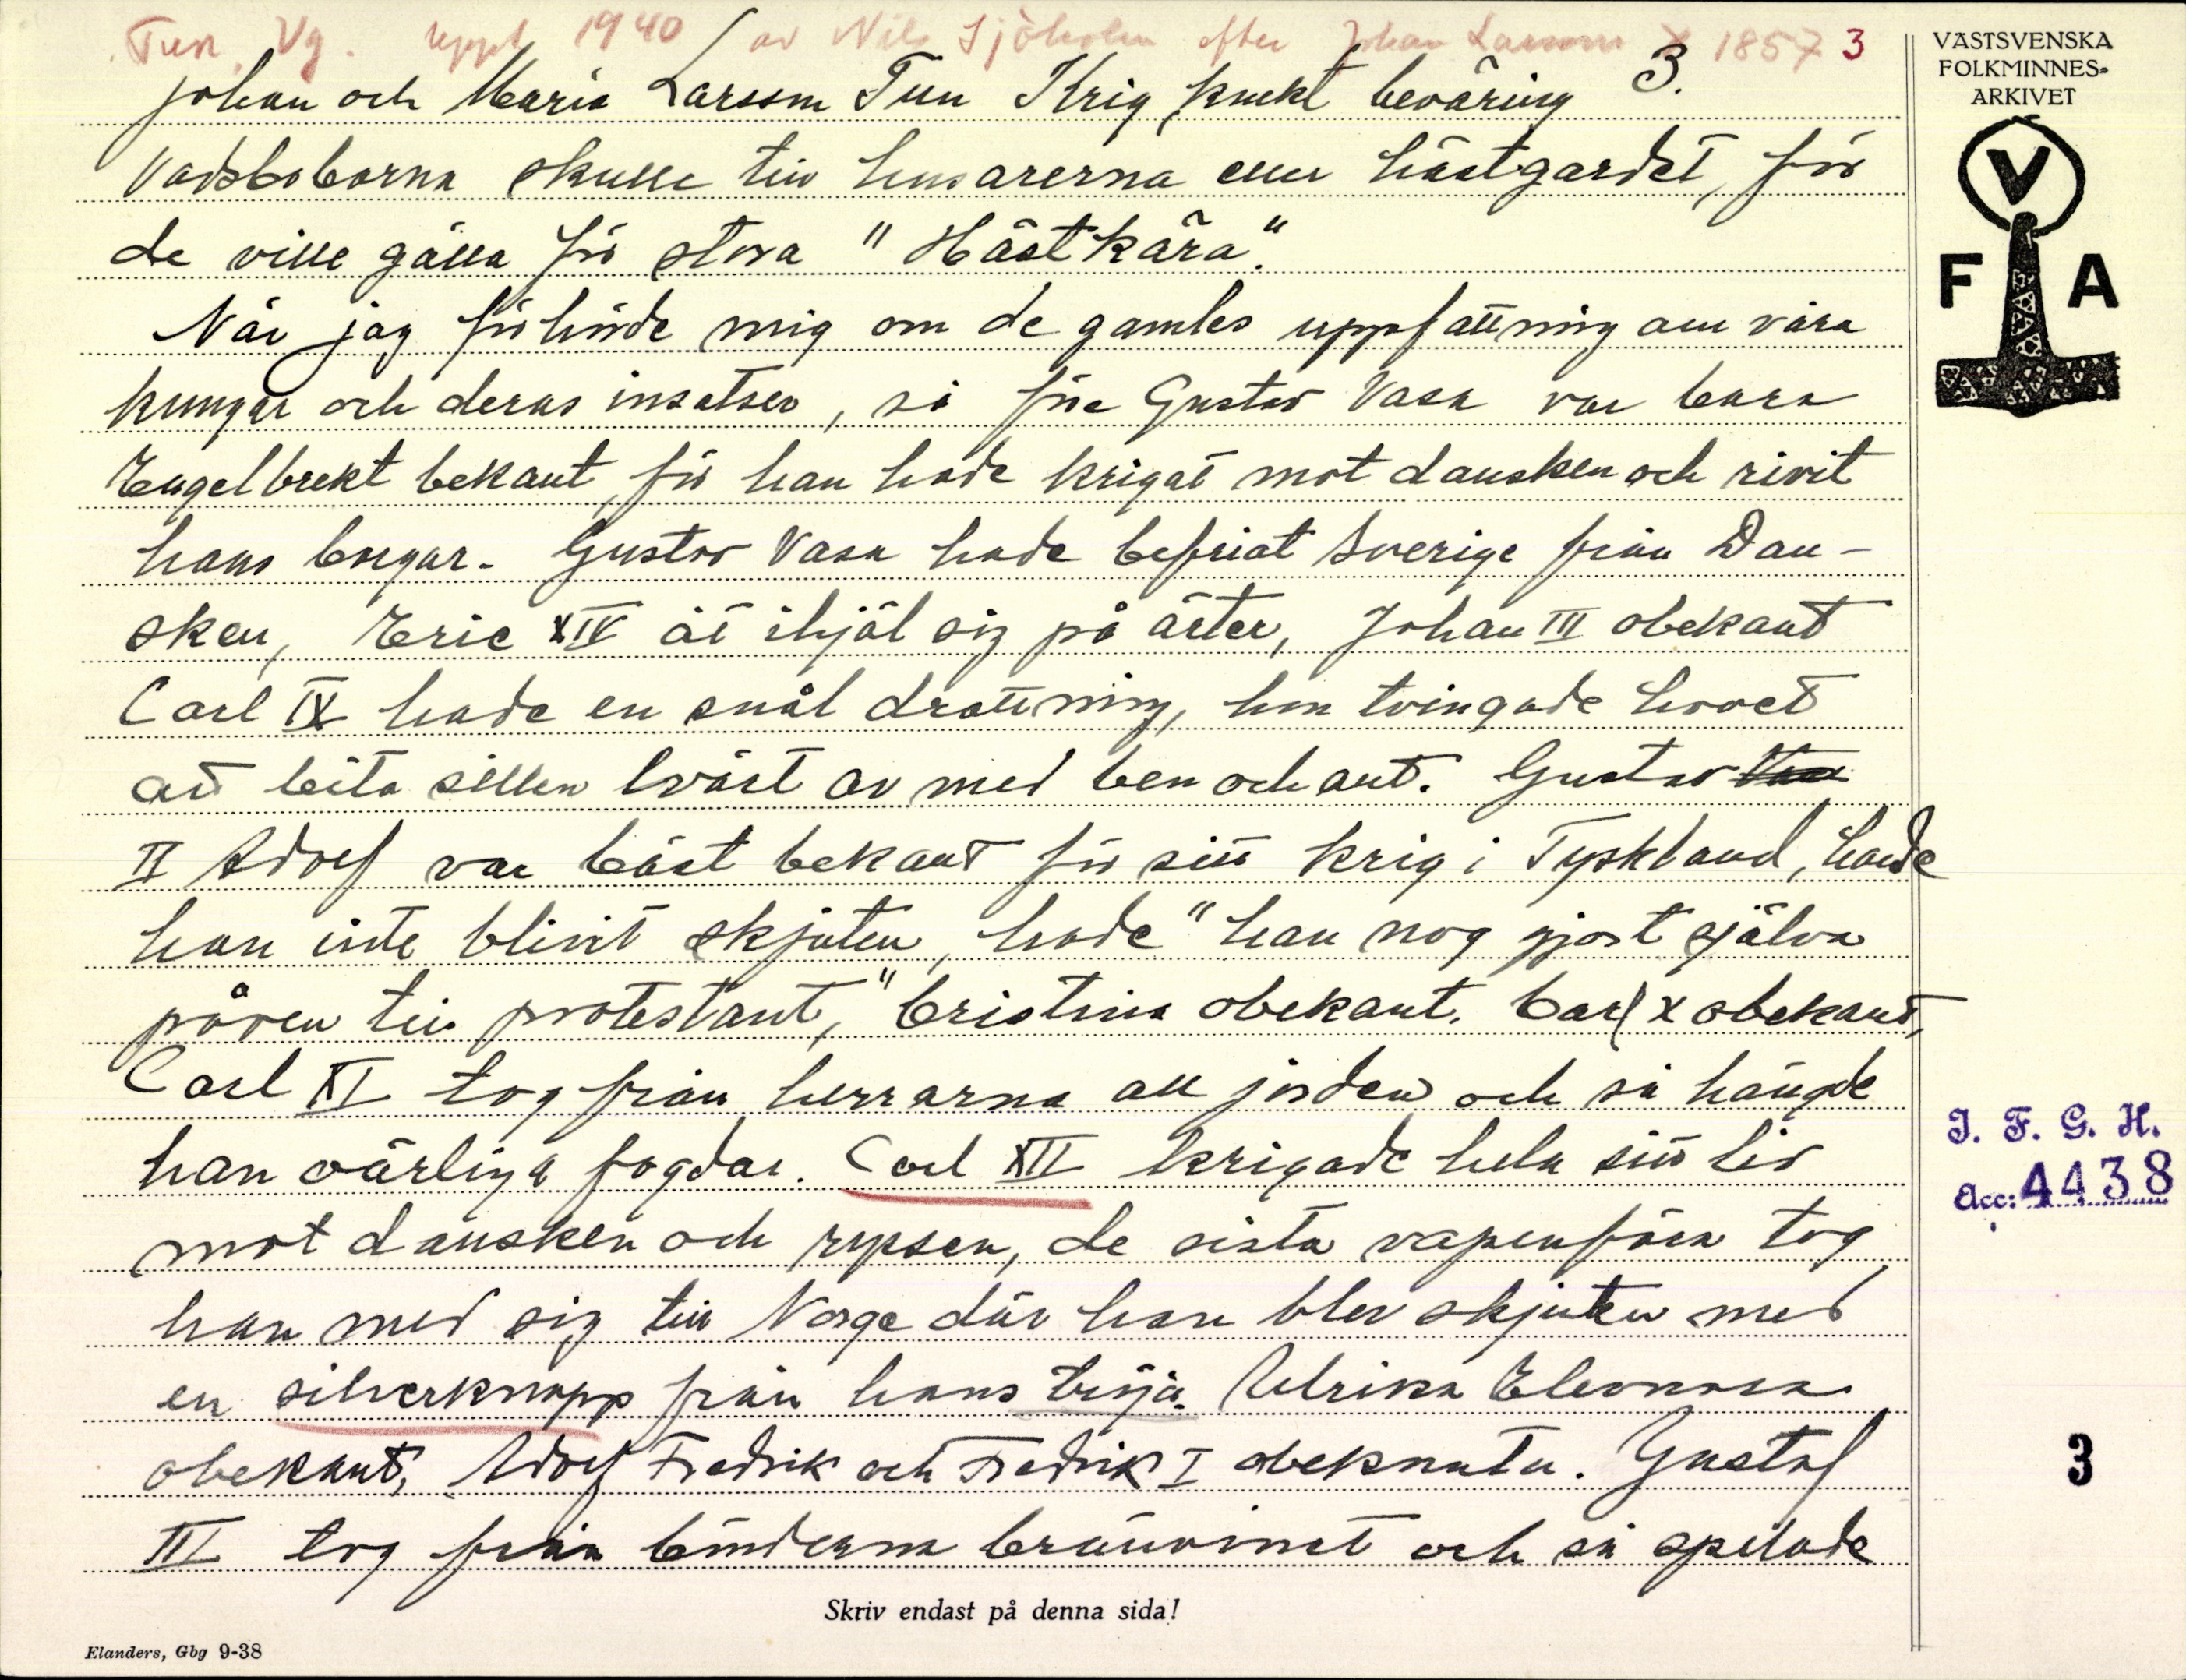 Tun, Vg. uppt 1940 av Nils Sjöholm efter Johan Larsson 1857 3
Johan och Maria Larsson Tun Krig knekt beväring 3.
Vadsboborna skulle till husarerna eller hästgardet, för
de ville gälla för stora "Hästkära".
När jag förhörde mig om de gamles uppfattning om våra
kungar och deras insatser, så före Gustav Vasa var bara
Engelbrekt bekant, för han hade krigat mot dansken och rivit
hans borgar. Gustav Vasa hade befriat Sverige från Dan-
sken, Eric XIV åt ihjäl sig på ärter, Johan III obekant
Carl IX hade en snål drottning, hon tvingade hovet
att bita sillen tvärt av med ben och allt. Gustav
II Adolf var bäst bekant för sitt krig i Tyskland, hade
han inte blivit skjuten, hade "han nog gjort själva
påven till protestant," Cristina obekant. Carl X obekant,
Carl XI tog från herrarna all jorden och så hängde
han oärliga fogdar. Carl XII krigade hela sitt liv
mot dansken och ryssen, de sista vapenföra tog
han med sig till Norge där han blev skjuten med
en silverknapp från hans tröja. Ulrika Eleonora
obekant, Adolf Fredrik och Fredrik I obekanta. Gustaf
III tog från bönderna brännvinet och så spelade
Skriv endast på denna sida!
Elanders, Gbg 9-38
VÄSTSVENSKA
FOLKMINNES-
ARKIVET
V
F A
I. F. G. H.
Acc: 4438
3